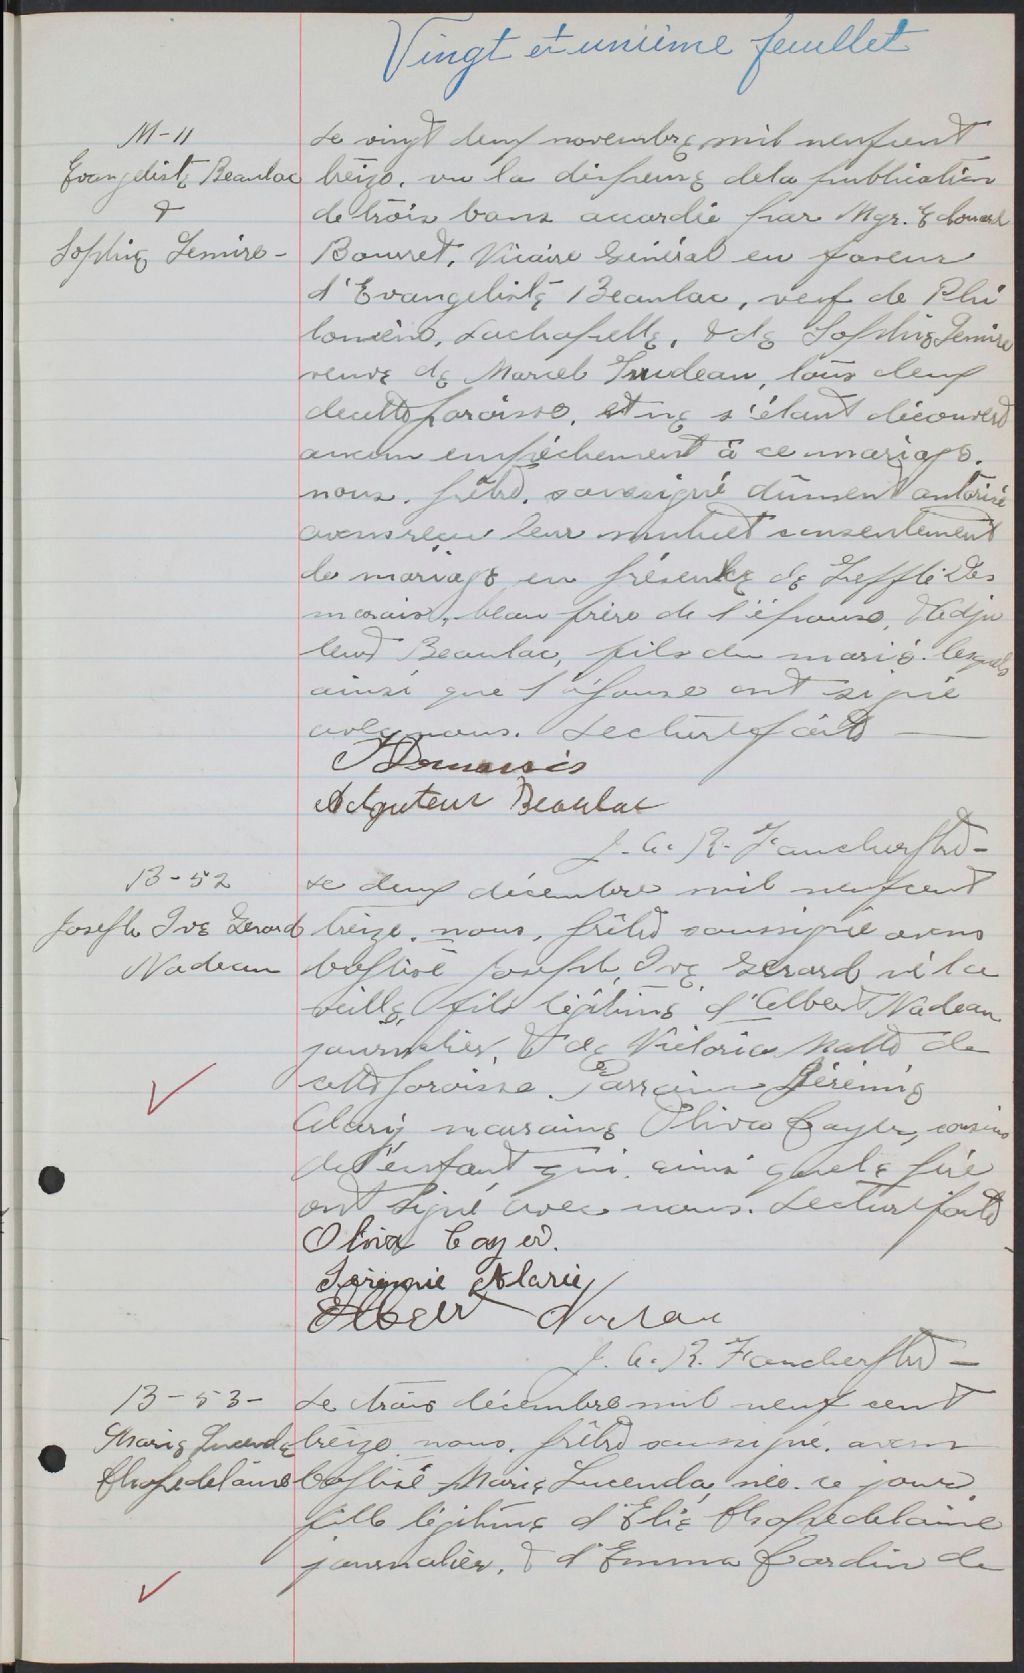 Vingt et unième feuillet
M-11
Evangeliste Beaulac
&
Sophie Lemire -
Le vingt deux novembre mil neuf cent
treize, vu la dispense de la publication
de trois bans accordée par Mgr. Edouard
Bourret, Vicaire Général en faveur
d'Evangeliste Beaulac, veuf de Phi
lomène Lachapelle, & de Sophie Lemire
veuve de Marcel Trudeau, tous deux
de cette paroisse, et ne s'étant découvert
aucun empêchement à ce mariage,
nous, prêtre, soussigné dûment autorisé
avons reçu leur mutuel consentement
de mariage en présence de Zeffle Des
marais, beau frère de l'épouse, & Adju
teur Beaulac, fils du marié lesquels
ainsi que l'épouse ont signé
avec nous. Lecture faite
Desmarais
Adjuteur Beaulac
J. A. R. Faucher ptre -
B-52
Joseph Ive Gerard
Nadeau
Le deux décembre mil neuf cent
treize, nous, prêtre soussigné avons
baptisé Joseph, Ive, Gerard né la
veille, fils légitime d'Albert Nadeau
journalier, & de Victoria Matte de
cette paroisse. Parrain Jérémie
Alary, marraine Oliva Cayer, cousins
de l'enfant qui ainsi que le père
ont signé avec nous. Lecture faite
Oliva Cayer.
Jérémie Alarie
Albert Nadeau
J. A. R. Faucher ptre -
B-53-
Marie Lucenda
Chapedelaine
Le trois décembre mil neuf cent
treize nous, prêtre soussigné, avons
baptisé Marie Lucenda, née ce jour
fille légitime d'Elie Chapedelaine
journalier, & d'Emma Cardin de